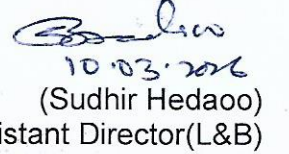 10.03.2026
(Sudhir Hedaoo)
istant Director(L&B)